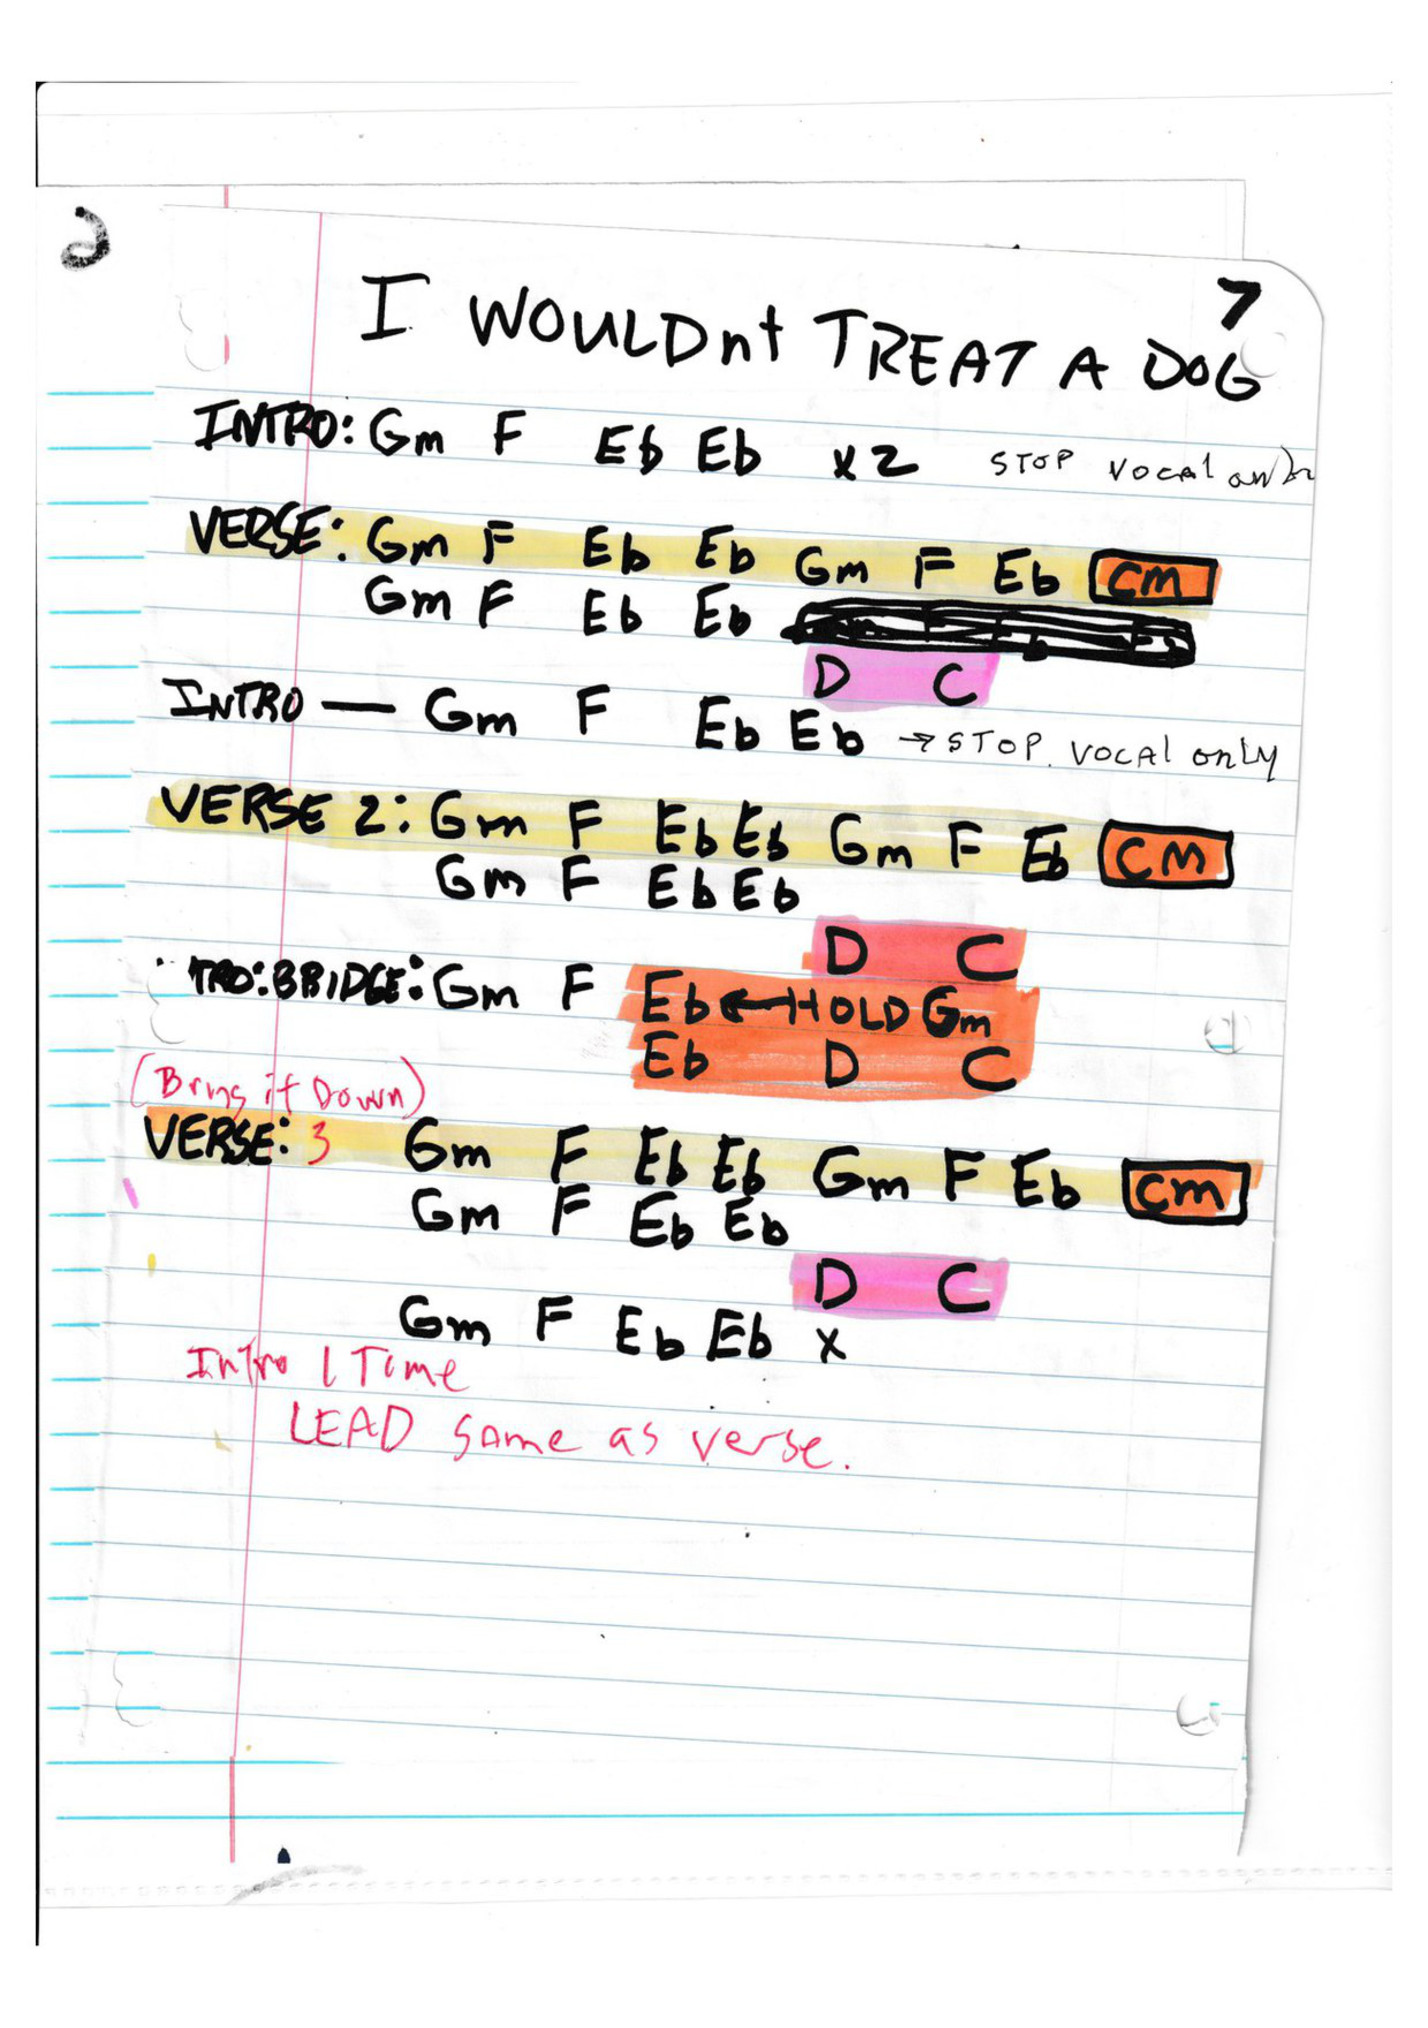 7
I WOULDnt TREAT A DOG
INTRO: Gm F Eb Eb x2 STOP vocal only
VERSE: Gm F Eb Eb Gm F Eb Cm
Gm F Eb Eb
D C
INTRO — Gm F Eb Eb → STOP. VOCAL only
VERSE 2: Gm F Eb Eb Gm F Eb CM
Gm F Eb Eb
D C
TRO: BRIDGE: Gm F Eb ← HOLD Gm
Eb D C
(Bring it Down)
VERSE: 3 Gm F Eb Eb Gm F Eb Cm
Gm F Eb Eb
D C
Gm F Eb Eb x
Intro 1 Time
LEAD same as verse.